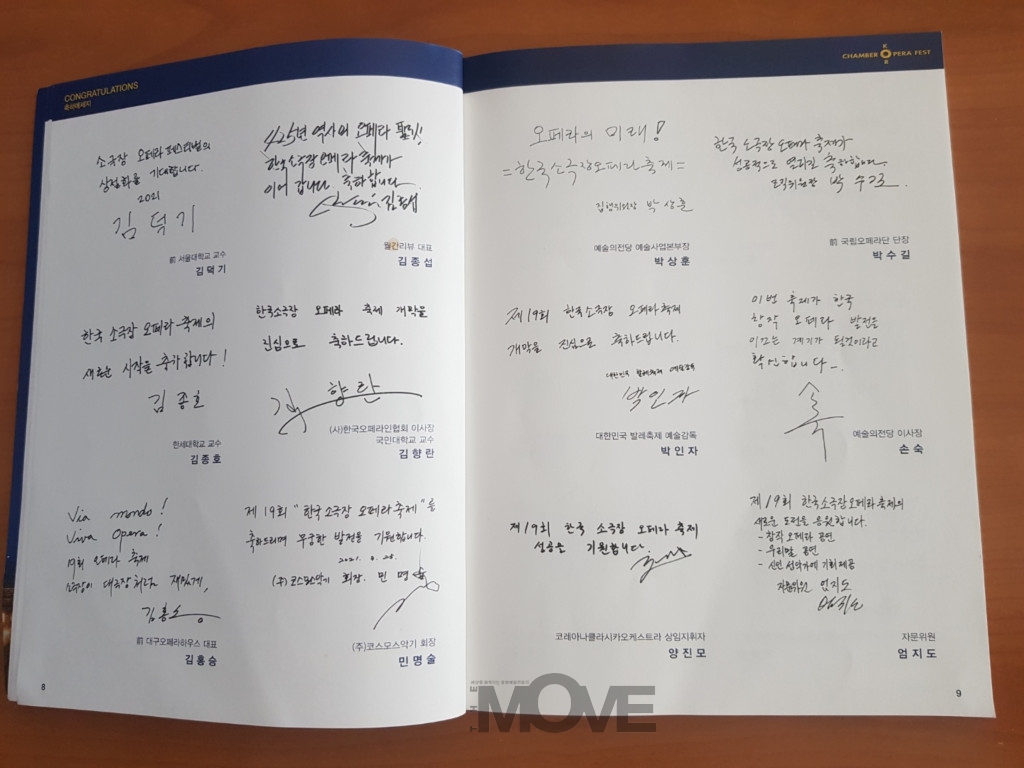 CONGRATULATIONS
축하메세지
소극장 오페라 페스티벌의
상설화를 기대합니다.
2021
김덕기
前 서울대학교 교수
김 덕 기
425년 역사의 오페라
한국소극장오페라 축제가
이어 갑니다. 축하합니다
김종섭
월간리뷰 대표
김 종 섭
한국 소극장 오페라 축제의
새로운 시작을 축하합니다!
김 종호
한세대학교 교수
김 종 호
한국소극장 오페라 축제 개막을
진심으로 축하드립니다.
김향란
(사)한국오페라인협회 이사장
국민대학교 교수
김 향 란
Via mondo!
Viva Opera!
오페라 축제
소극장이 대극장처럼 재밌게,
김홍승
前 대구오페라하우스 대표
김 홍 승
제 19회 "한국 소극장 오페라 축제"를
축하드리며 무궁한 발전을 기원합니다.
(주)코스모스악기 회장. 민 명 술
(주)코스모스악기 회장
민 명 술
8
CHAMBER OPERA FEST
오페라의 미래!
=한국소극장오페라축제=
집행위원장 박상훈
예술의전당 예술사업본부장
박 상 훈
한국 소극장 오페라 축제가
성공적으로 열리길 축하합니다
조직위원장 박 수 길.
前 국립오페라단 단장
박 수 길
제19회 한국소극장 오페라축제
개막을 진심으로 축하드립니다.
대한민국 발레축제 예술감독
박인자
대한민국 발레축제 예술감독
박 인 자
이번 축제가 한국
창작 오페라 발전을
이끄는 계기가 될것이라고
확인합니다.
손숙
예술의전당 이사장
손 숙
제19회 한국 소극장 오페라 축제
성공을 기원합니다.
코레아나클라시카오케스트라 상임지휘자
양 진 모
제19회 한국소극장오페라축제의
새로운 도전을 응원합니다.
- 창작 오페라 공연
- 우리말 공연
- 신인 성악가에 기회제공
자문위원 엄지도
엄지도
자문위원
엄 지 도
9
THE MOVE